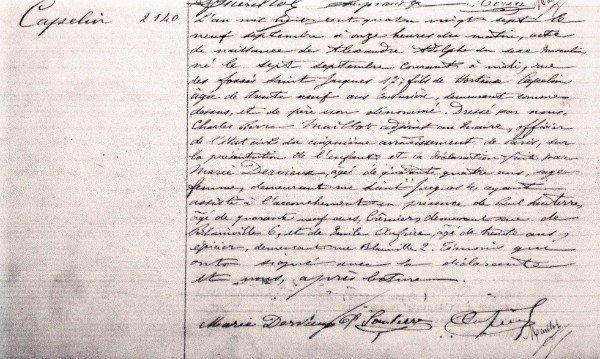 Capelin 2140
L'an mil huit cent quatre vingt sept le
neuf septembre à onze heures du matin, acte
de naissance de Alexandre Adolphe du sexe masculin,
né le sept septembre courant à midi, rue
des fossés Saint Jacques 17; fils de Hortense Capelin
âgée de trente neuf ans demeurant comme
dessus, et de père non dénommé. Dressé par nous
Charles Maillot adjoint au maire, officier
de l'état civil du cinquième arrondissement de Paris, sur
la présentation de l'enfant et la déclaration faite par
Marie Dervieux, âgée de quarante quatre ans, sage
femme, demeurant rue Saint Jacques ayant
assisté à l'accouchement en présence de Paul
âgé de quarante neuf ans, Crémier, demeurant rue de
Blainville 6, et de Emile âgé de trente ans,
épicier, demeurant rue Blainville 2. Témoins qui
ont signé avec la déclarante
et nous, après lecture.
Marie Dervieux P. Maillot